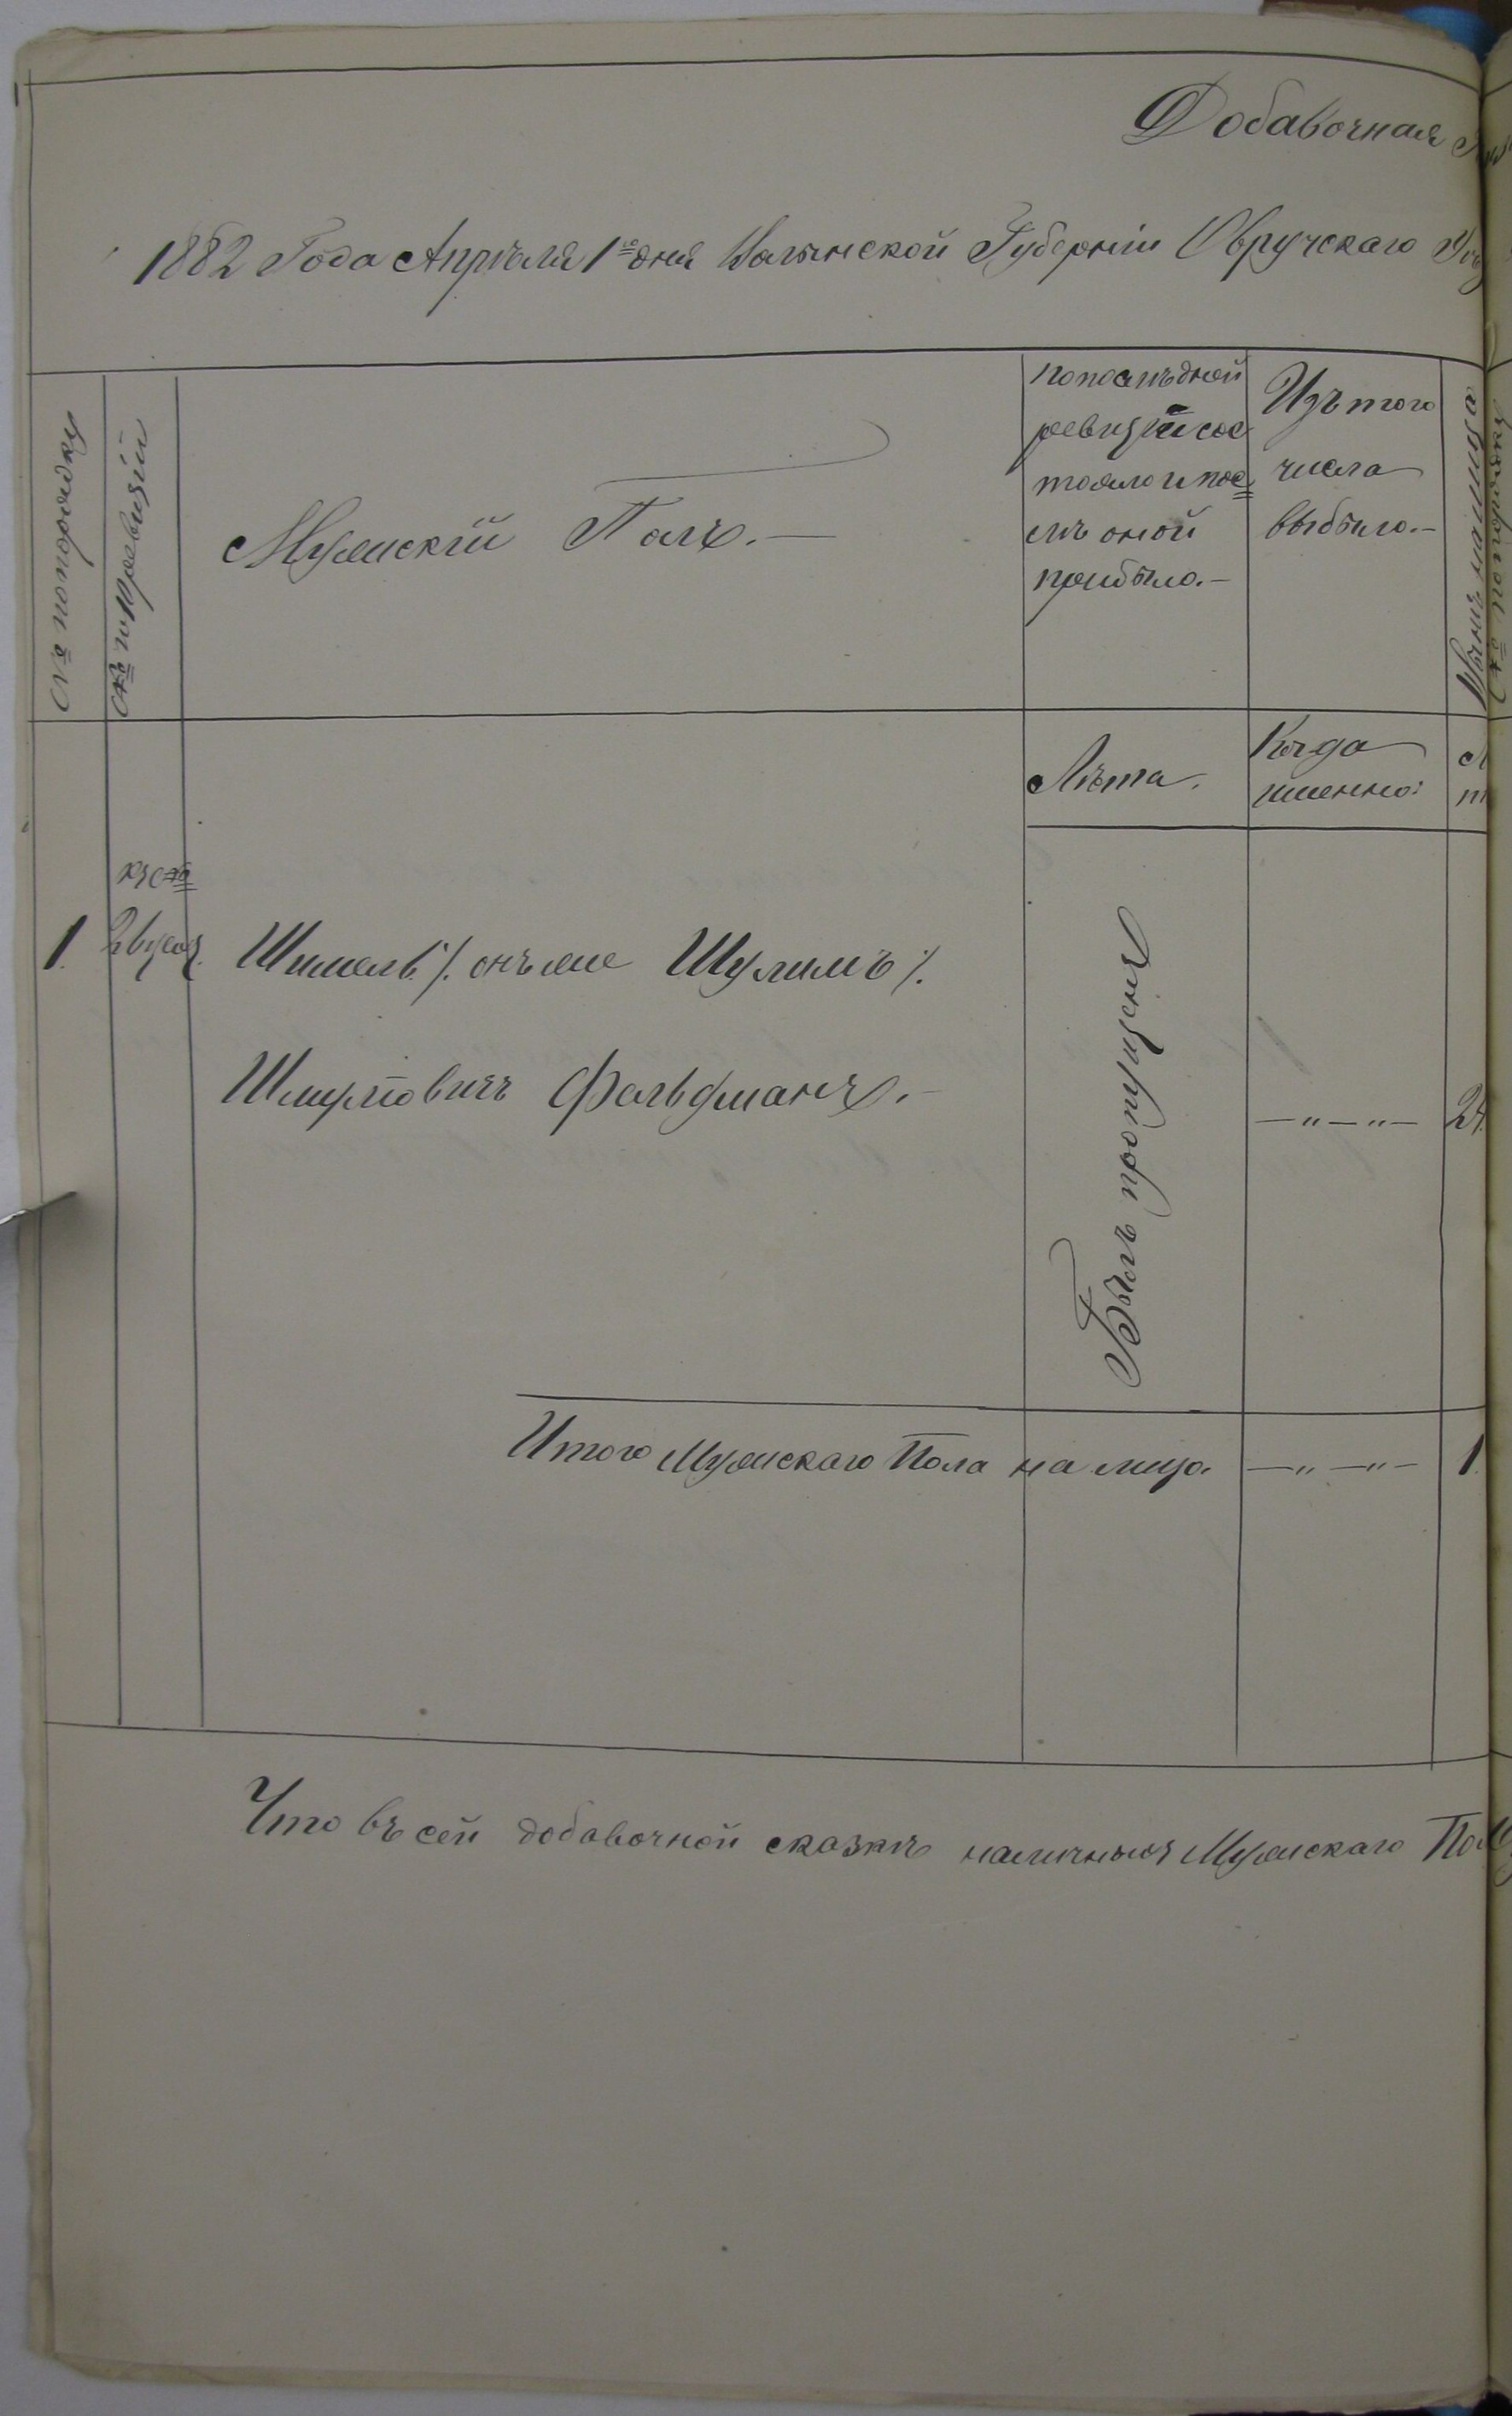 Добавочная
1882 Года Апрѣля 1го дня Волынской Губерніи Овручскаго
№ по порядку
№ по 10 ревизіи
Мужскій Полъ.—
По послѣдной
ревизіи сос
тояло и пос=
лѣ оной
прибыло.—
Изъ того
числа
выбыло.—
Лѣта.
Когда
именно:
1.
Шимель /. онъ же Шулимъ /.
Шмулiовичъ Фельдманъ.—
Былъ пропущенъ
—"—"—
24.
Итого Мужскаго Пола на лицо.
—"—"—
1.
Что въ сей добавочной сказкѣ наличныя Мужскаго